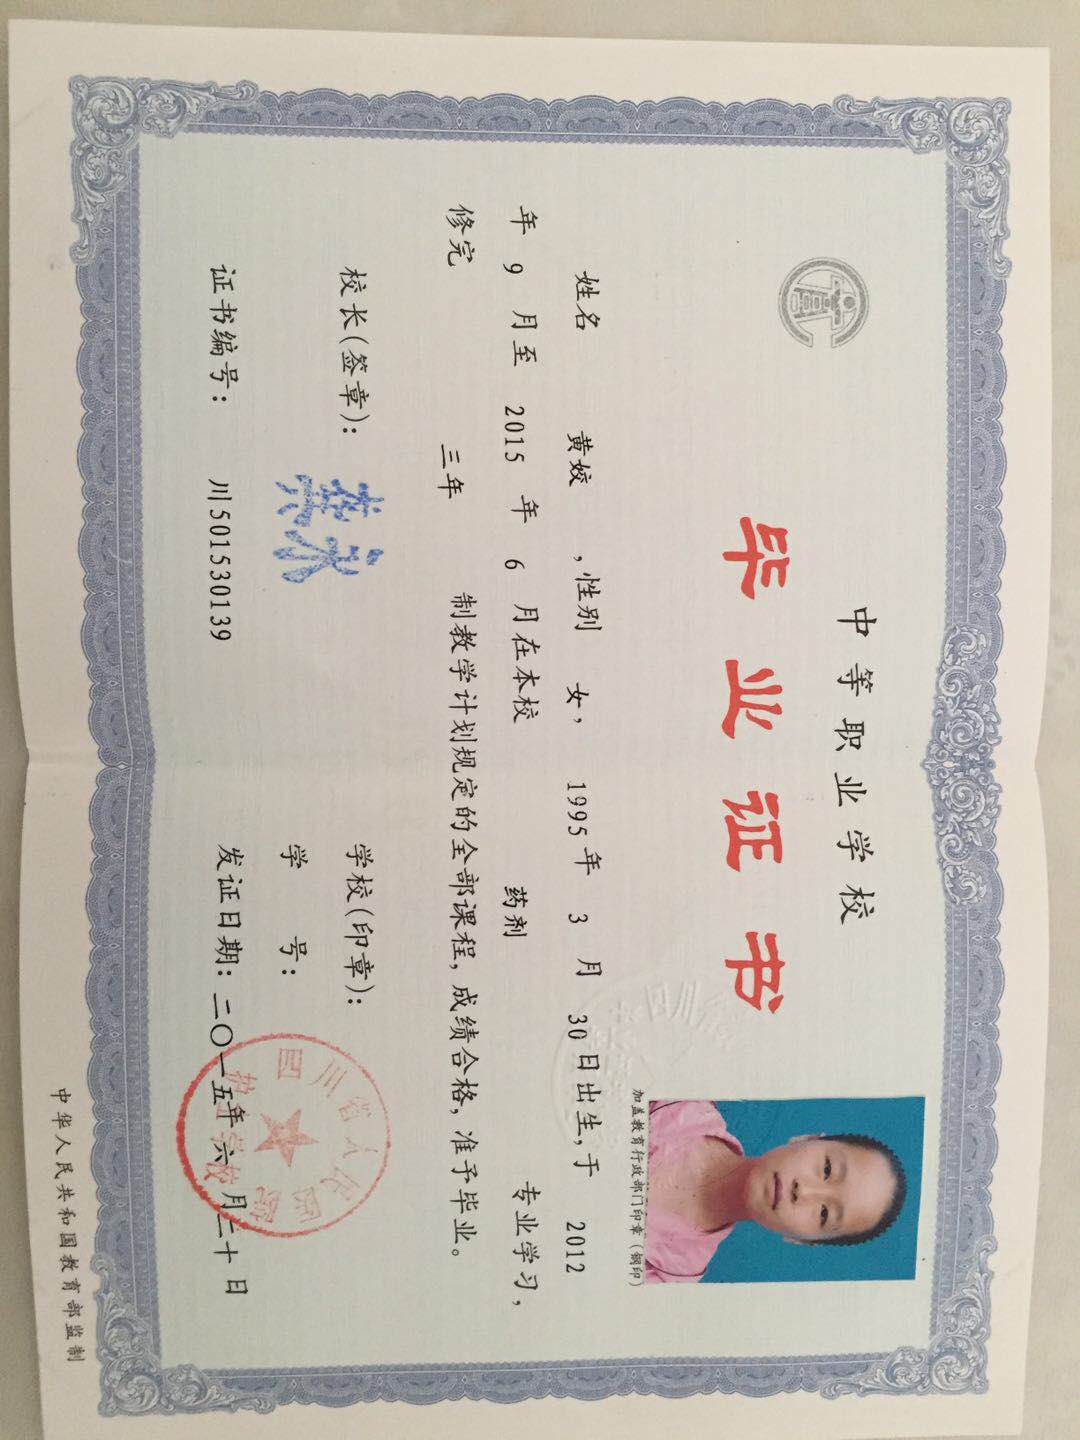 中等职业学校
毕业证书
加盖教育行政部门印章（钢印）
姓名 黄姣 ，性别 女， 1995 年 3 月 30 日出生，于 2012
年 9 月至 2015 年 6 月在本校 药剂 专业学习，
修完 三年 制教学计划规定的全部课程，成绩合格，准予毕业。
校长（签章）： 学校（印章）：
四川省人民医院护士学校
学 号：
证书编号： 川501530139 发证日期：二〇一五年六月二十日
中华人民共和国教育部监制